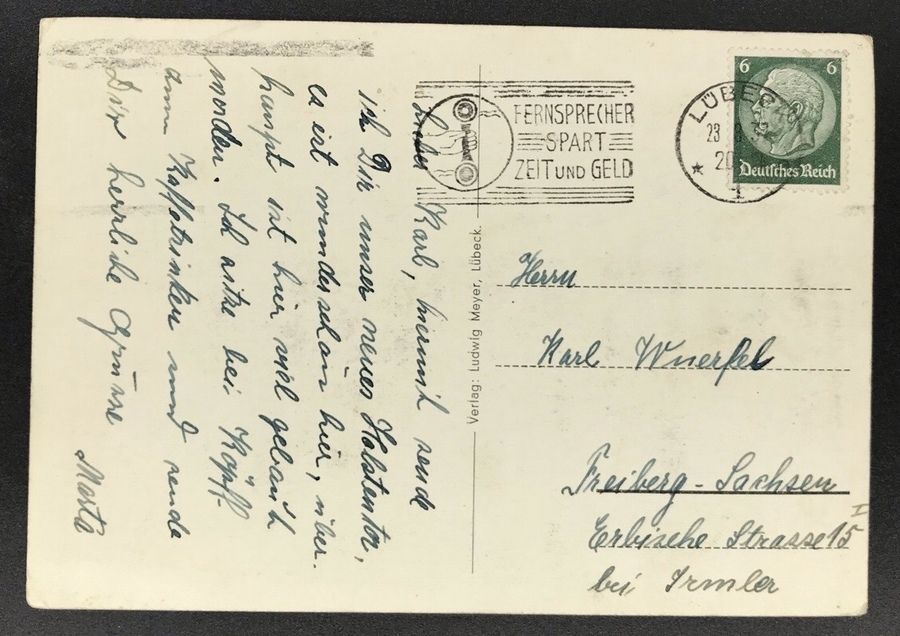 Lieber Karl, hiermit sende
ich Dir unser neues Holstentor,
es ist wunderschön hier, über-
haupt ist hier viel gebaut
worden. Ich sitze bei Köpff
zum Kaffetrinken und sende
Dir herzliche Grüsse
Marta
FERNSPRECHER
SPART
ZEIT UND GELD
LÜBECK
23
20
1
6 6
Deutsches Reich
Verlag: Ludwig Meyer, Lübeck.
Herrn
Karl Wuerfel
Freiberg - Sachsen
Erbische Strasse 15 I
bei Irmler